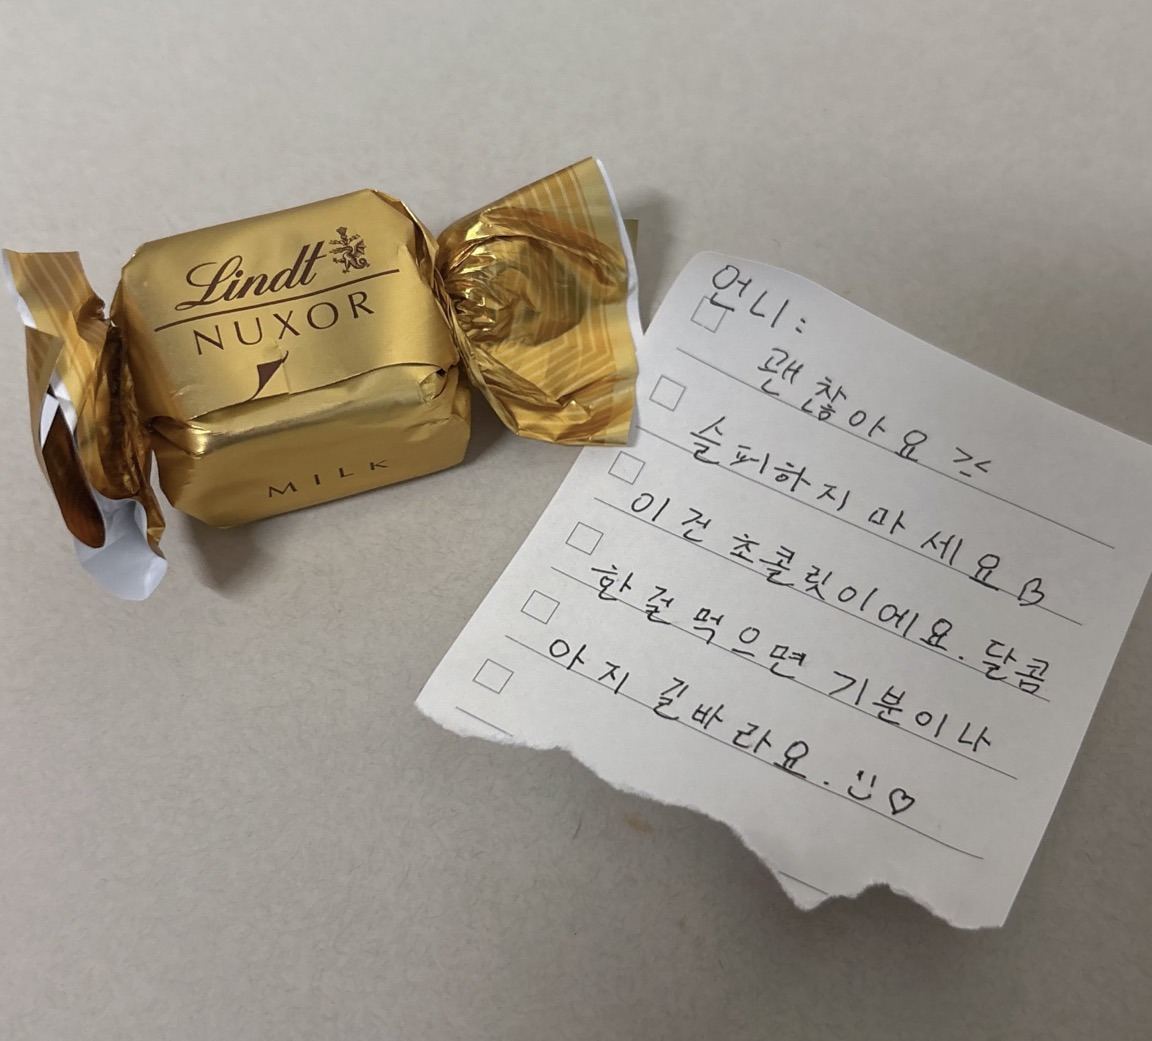 Lindt
NUXOR
MILK
언니:
괜찮아요 ><
슬피하지 마세요 ♡
이건 초콜릿이에요. 달콤
한 걸 먹으면 기분이 나
아지 길바라요. :) ♡